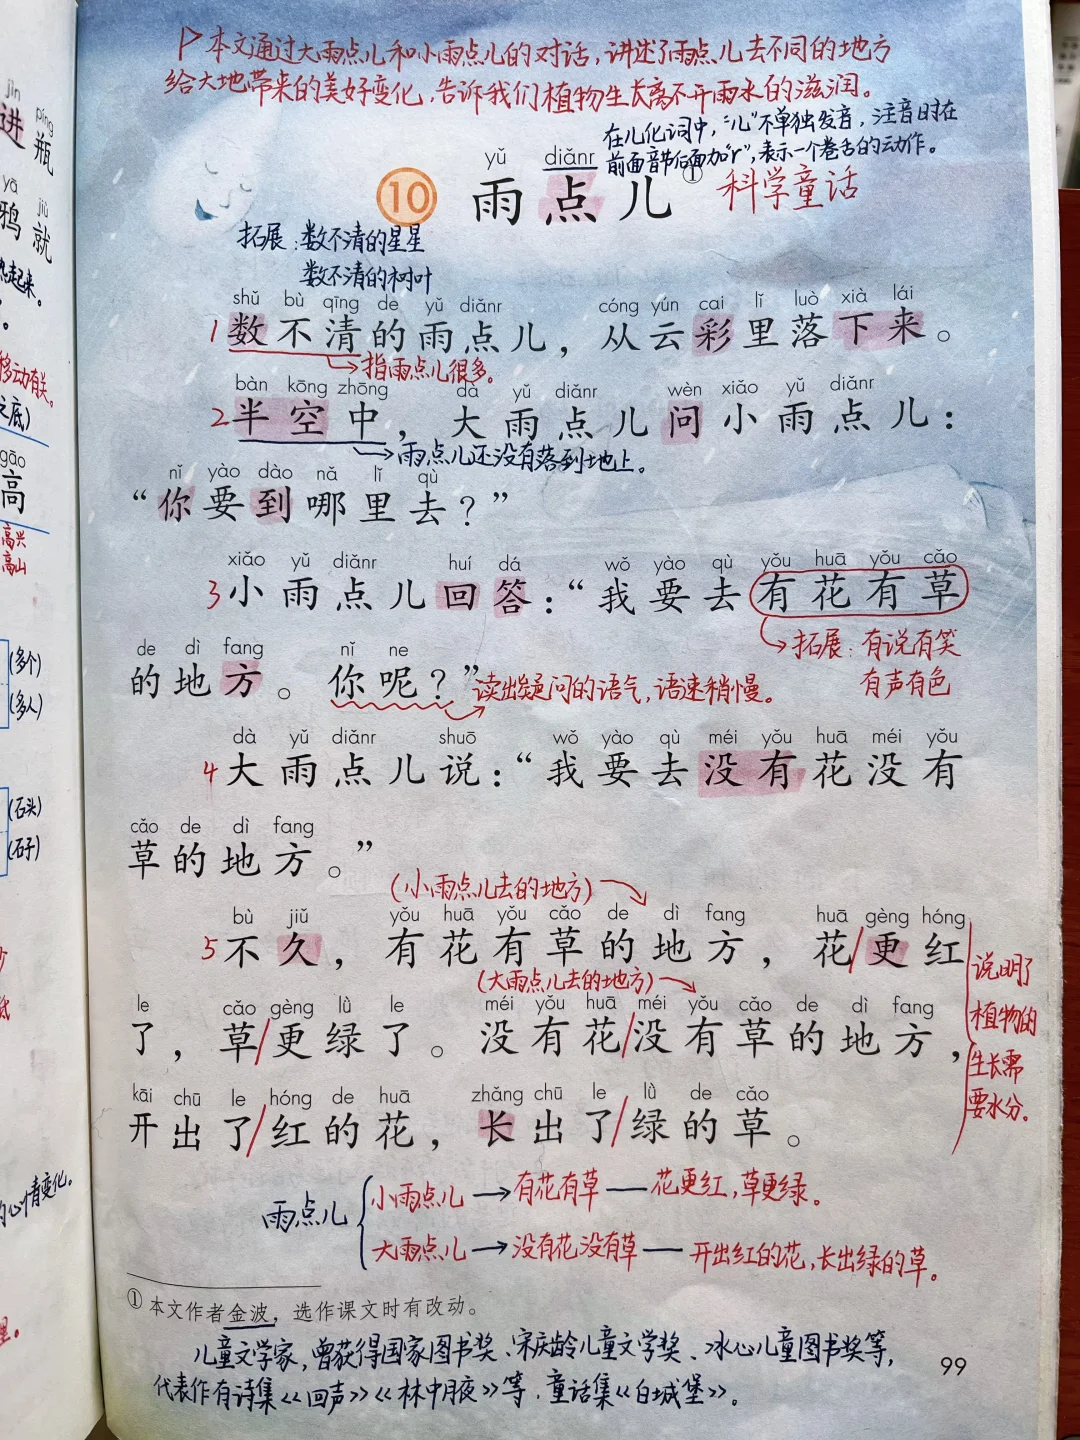 jìn
进
píng
瓶
yā
鸦
jiù
就
gāo
高
高兴
高山
(多个)
(多人)
(石头)
(石子)
本文通过大雨点儿和小雨点儿的对话,讲述了雨点儿去不同的地方
给大地带来的美好变化,告诉我们植物生长离不开雨水的滋润。
在儿化词中,“儿”不单独发音,注音时在
前面音节后面加“r”,表示一个卷舌的动作。
yǔ diǎnr
10 雨点儿①
科学童话
拓展:数不清的星星
数不清的树叶
shǔ bù qīng de yǔ diǎnr cóng yún cai lǐ luò xià lái
1 数不清的雨点儿,从云彩里落下来。
指雨点儿很多。
bàn kōng zhōng dà yǔ diǎnr wèn xiǎo yǔ diǎnr
2 半空中,大雨点儿问小雨点儿:
雨点儿还没有落到地上。
nǐ yào dào nǎ lǐ qù
“你要到哪里去?”
xiǎo yǔ diǎnr huí dá wǒ yào qù yǒu huā yǒu cǎo
3 小雨点儿回答:“我要去有花有草
拓展:有说有笑
有声有色
de dì fang nǐ ne
的地方。你呢?”
读出疑问的语气,语速稍慢。
dà yǔ diǎnr shuō wǒ yào qù méi yǒu huā méi yǒu
4 大雨点儿说:“我要去没有花没有
cǎo de dì fang
草的地方。”
(小雨点儿去的地方)
bù jiǔ yǒu huā yǒu cǎo de dì fang huā gèng hóng
5 不久,有花有草的地方,花/更红
(大雨点儿去的地方)
le cǎo gèng lǜ le méi yǒu huā méi yǒu cǎo de dì fang
了,草/更绿了。没有花/没有草的地方,
kāi chū le hóng de huā zhǎng chū le lǜ de cǎo
开出了/红的花,长出了/绿的草。
说明了
植物的
生长需
要水分。
雨点儿
小雨点儿→有花有草—花更红,草更绿。
大雨点儿→没有花没有草—开出红的花,长出绿的草。
① 本文作者金波,选作课文时有改动。
儿童文学家,曾获得国家图书奖、宋庆龄儿童文学奖、冰心儿童图书奖等,
代表作有诗集《回声》《林中月夜》等,童话集《白城堡》。
99